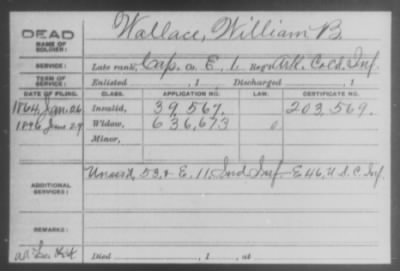 DEAD
NAME OF SOLDIER: Wallace, William B.
SERVICE: Late rank, Cap. Co. E, 1. Reg't Ark. Inf.
TERM OF SERVICE: Enlisted , 1 Discharged , 1
DATE OF FILING. CLASS. APPLICATION NO. LAW. CERTIFICATE NO.
1864, Jan. 26 Invalid, 39,567. 203,569.
1896 June 29 Widow, 636,673
Minor,
ADDITIONAL SERVICES: 53, & E. 11. Ind Inf. E 46, U.S.C. Inf.
REMARKS:
Died , 1 , at